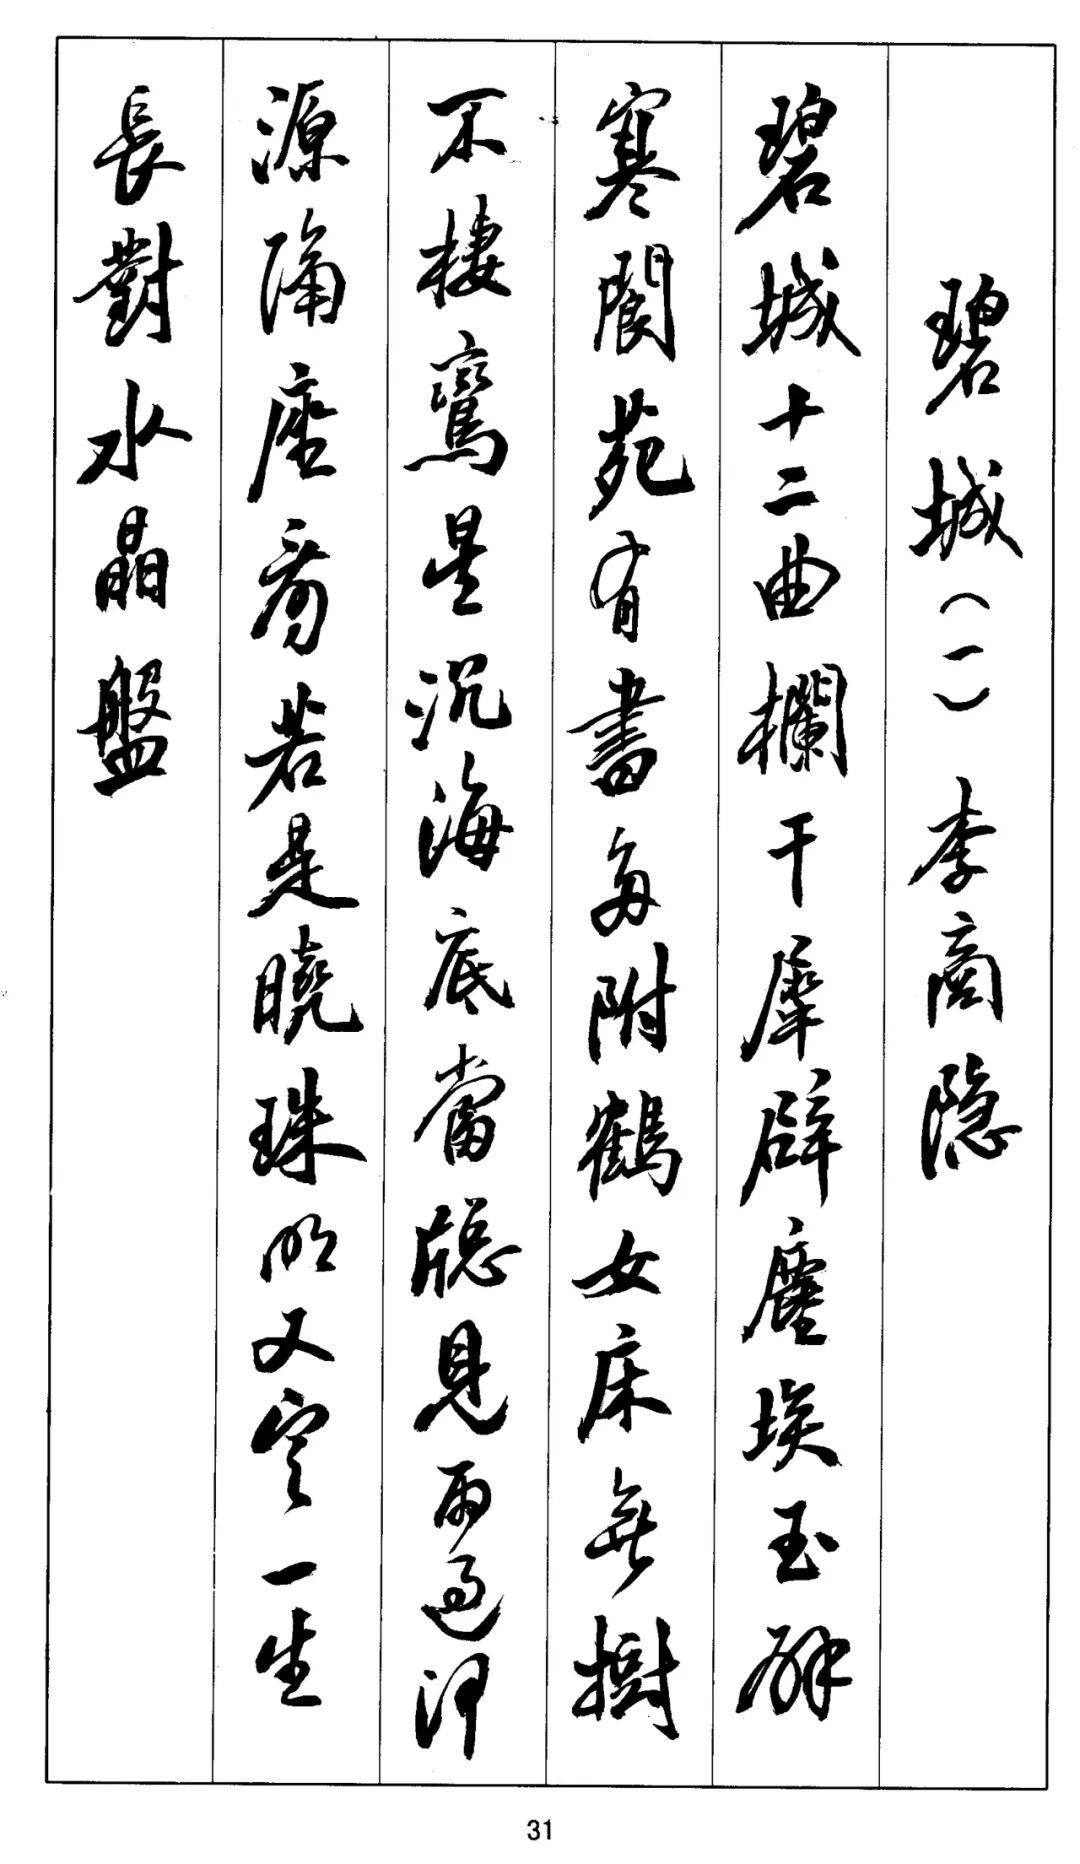 碧城（一） 李商隐
碧城十二曲欄干犀辟塵埃玉辟
寒閬苑有書多附鶴女床無樹
不棲鸞星沉海底當牕見雨過河
源隔座看若是曉珠明又定一生
長對水晶盤
31